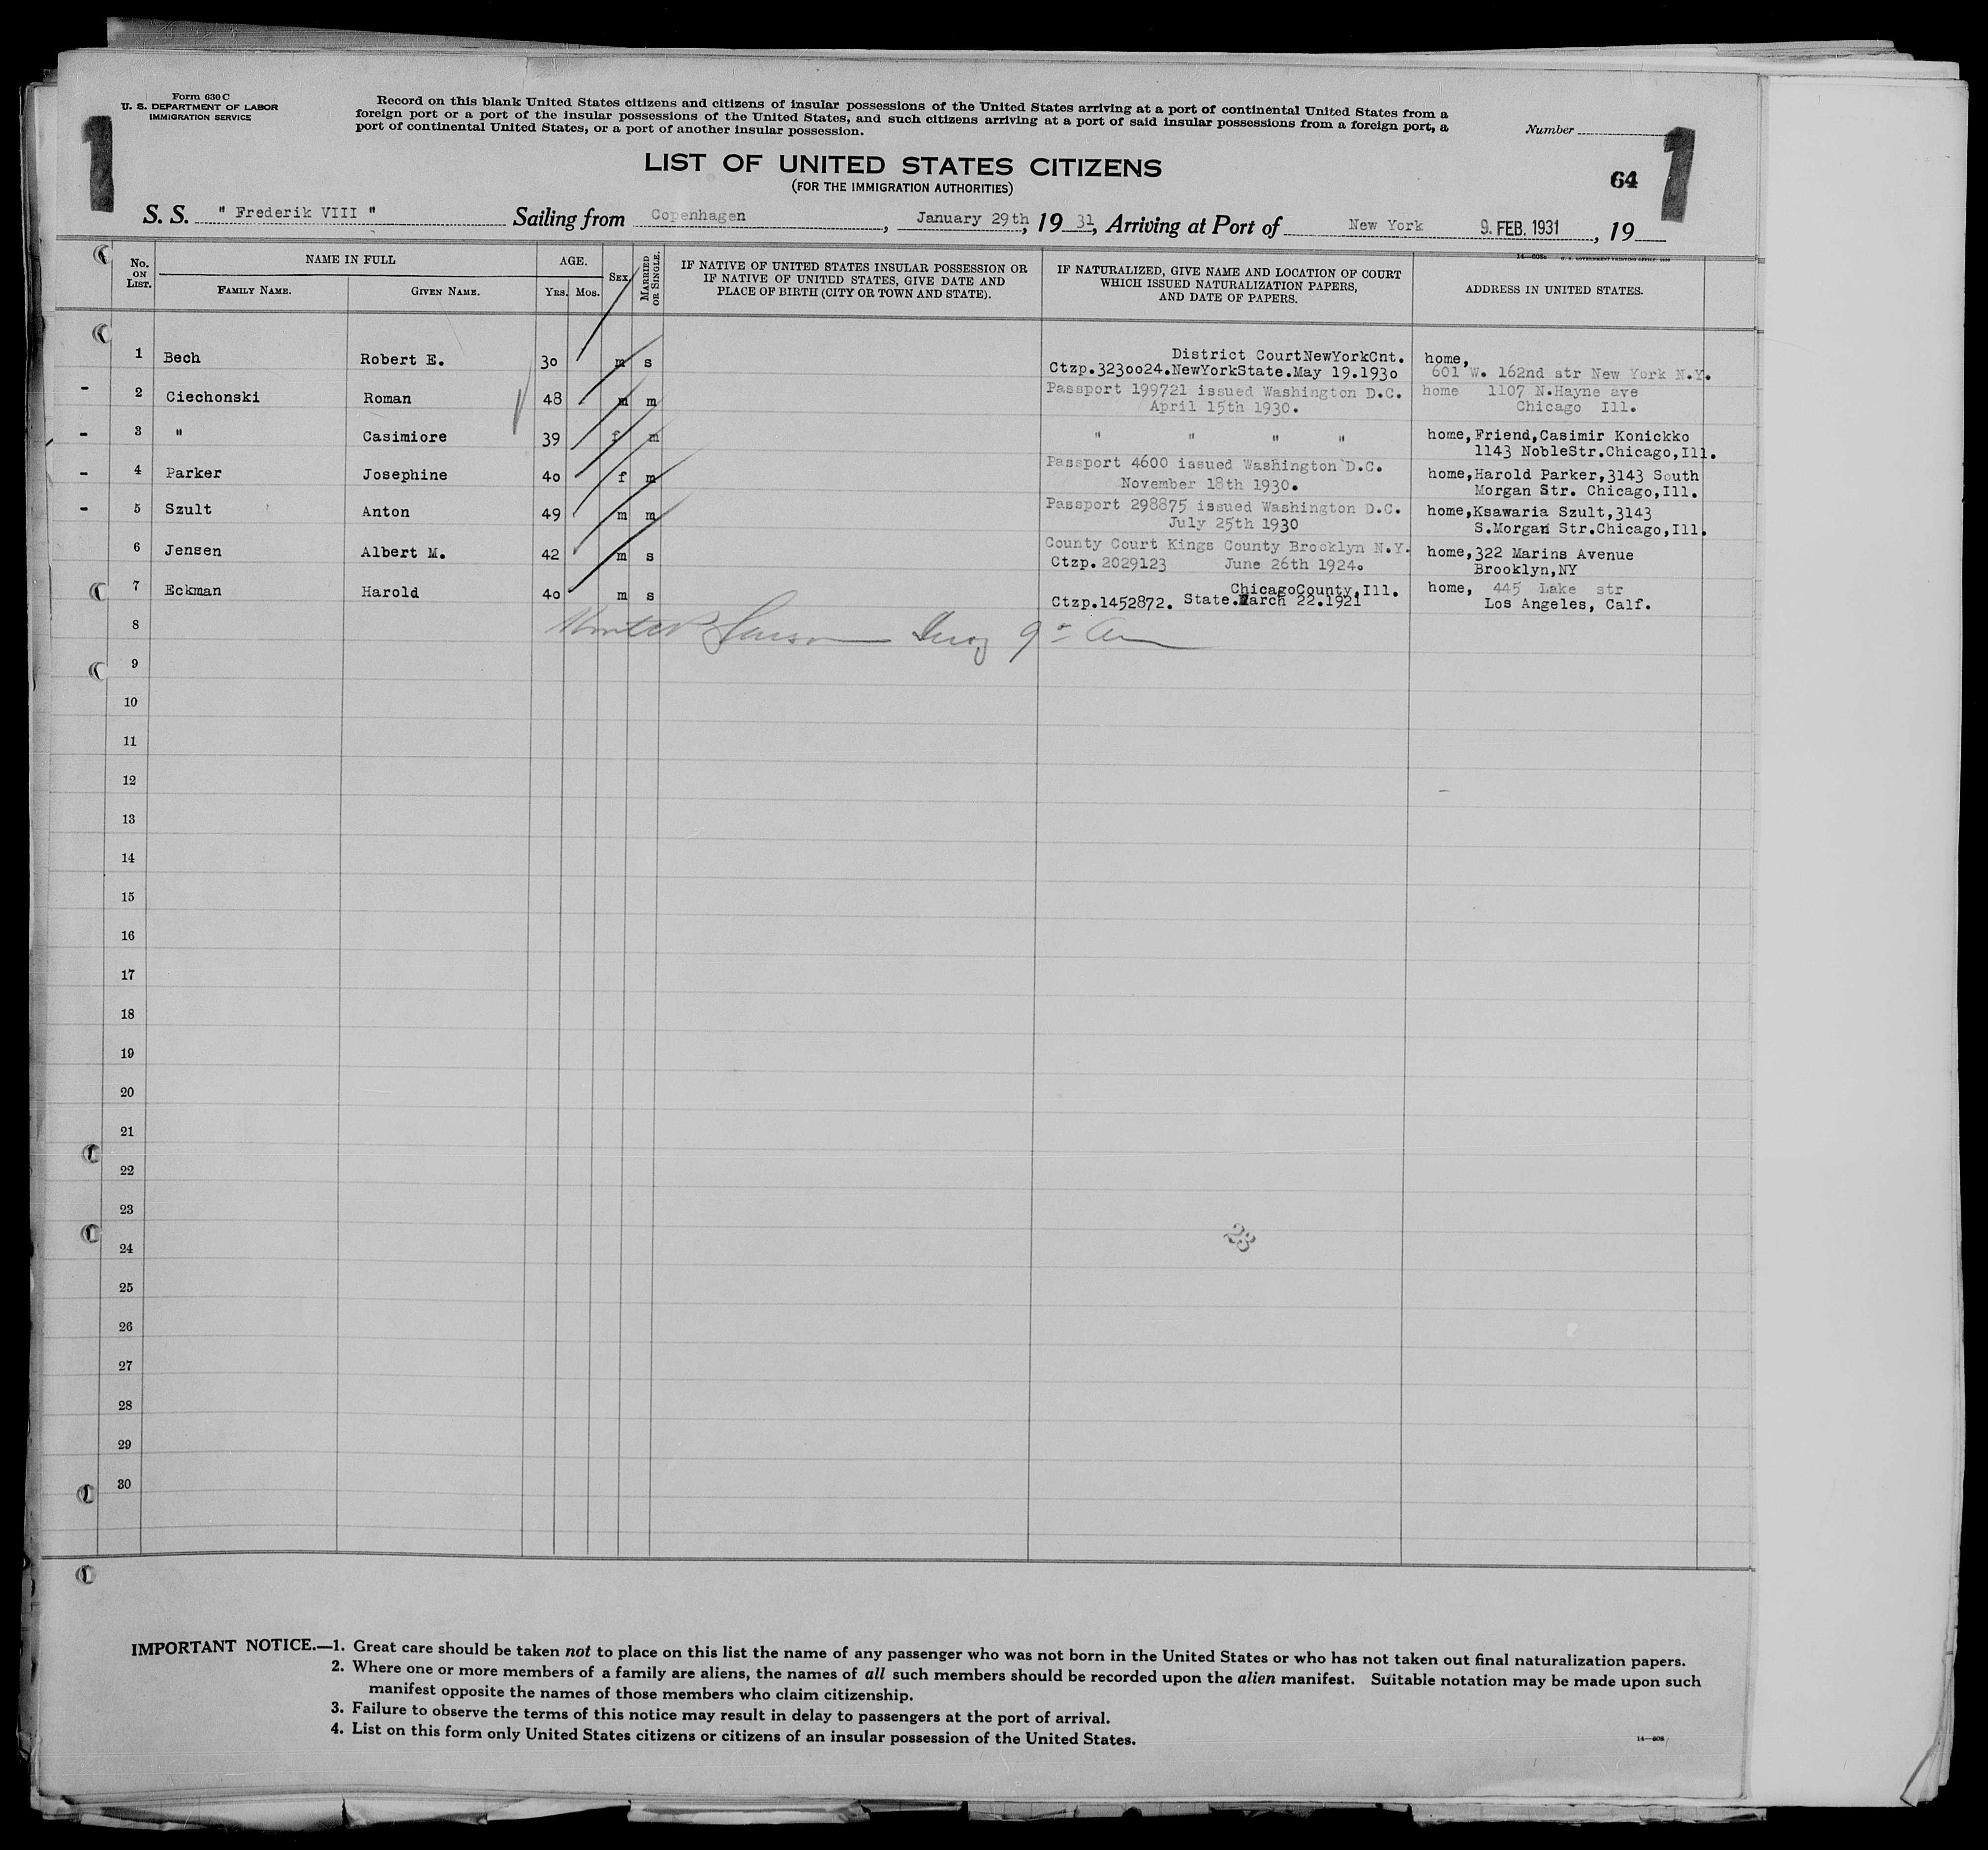 Form 630 C
U. S. DEPARTMENT OF LABOR
IMMIGRATION SERVICE
Record on this blank United States citizens and citizens of insular possessions of the United States arriving at a port of continental United States from a
foreign port or a port of the insular possessions of the United States, and such citizens arriving at a port of said insular possessions from a foreign port, a
port of continental United States, or a port of another insular possession.
Number
1
1
LIST OF UNITED STATES CITIZENS
(FOR THE IMMIGRATION AUTHORITIES)
64
S. S. " Frederik VIII " Sailing from Copenhagen, January 29th, 19 31, Arriving at Port of New York 9. FEB. 1931, 19
No. ON LIST.
NAME IN FULL
FAMILY NAME.
GIVEN NAME.
AGE.
YRS. MOS.
SEX
MARRIED OR SINGLE.
IF NATIVE OF UNITED STATES INSULAR POSSESSION OR
IF NATIVE OF UNITED STATES, GIVE DATE AND
PLACE OF BIRTH (CITY OR TOWN AND STATE).
IF NATURALIZED, GIVE NAME AND LOCATION OF COURT
WHICH ISSUED NATURALIZATION PAPERS,
AND DATE OF PAPERS.
ADDRESS IN UNITED STATES.
1 Bech Robert E. 30 m s District CourtNewYorkCnt. home,
Ctzp.3230024.NewYorkState.May 19.1930 601 W. 162nd str New York N.Y.
- 2 Ciechonski Roman 48 m m Passport 199721 issued Washington D.C. home 1107 N.Hayne ave
April 15th 1930. Chicago Ill.
- 3 " Casimiore 39 f m " " " " home,Friend,Casimir Konickko
1143 NobleStr.Chicago,Ill.
- 4 Parker Josephine 40 f m Passport 4600 issued Washington D.C. home,Harold Parker,3143 South
November 18th 1930. Morgan Str. Chicago,Ill.
- 5 Szult Anton 49 m m Passport 298875 issued Washington D.C. home,Ksawaria Szult,3143
July 25th 1930 S.Morgan Str.Chicago,Ill.
6 Jensen Albert M. 42 m s County Court Kings County Brooklyn N.Y. home,322 Marins Avenue
Ctzp.2029123 June 26th 1924. Brooklyn,NY
7 Eckman Harold 40 m s ChicagoCounty,Ill. home, 445 Lake str
Ctzp.1452872. State.March 22.1921 Los Angeles, Calf.
8
9
10
11
12
13
14
15
16
17
18
19
20
21
22
23
28
24
25
26
27
28
29
30
IMPORTANT NOTICE.—1. Great care should be taken not to place on this list the name of any passenger who was not born in the United States or who has not taken out final naturalization papers.
2. Where one or more members of a family are aliens, the names of all such members should be recorded upon the alien manifest. Suitable notation may be made upon such
manifest opposite the names of those members who claim citizenship.
3. Failure to observe the terms of this notice may result in delay to passengers at the port of arrival.
4. List on this form only United States citizens or citizens of an insular possession of the United States.
14—608